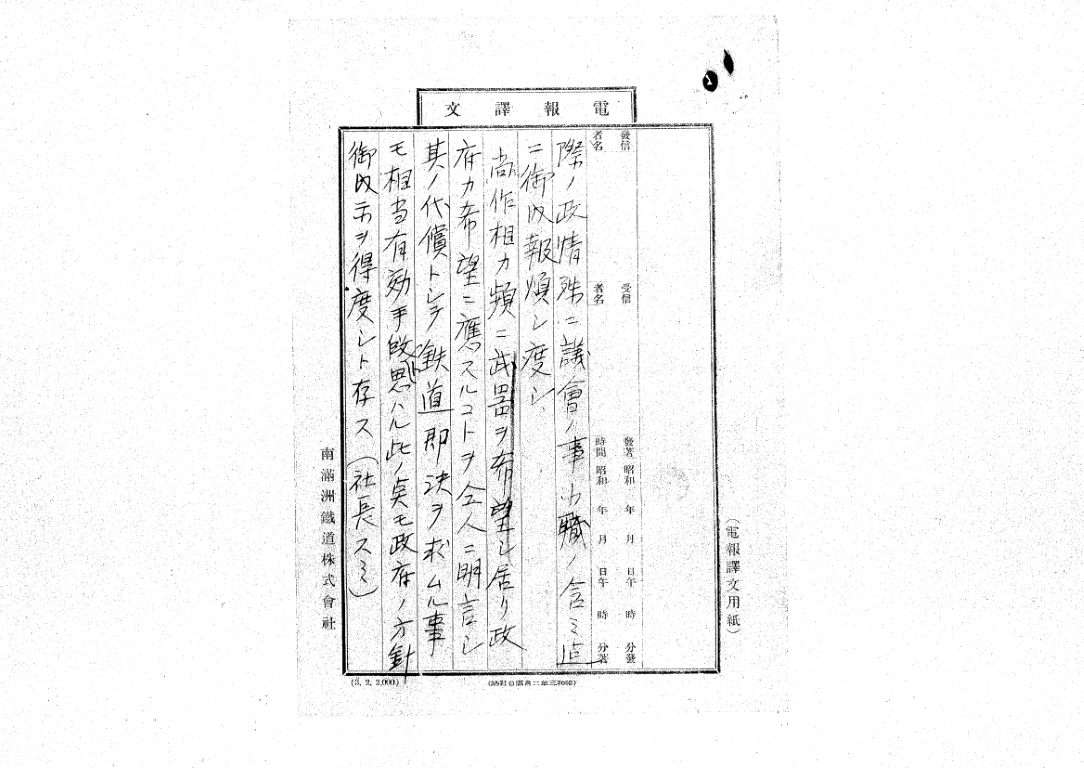 電報譯文
(電報譯文用紙)
發信者名 受信者名 發著時間 昭和 年 月 日午 時 分發
昭和 年 月 日午 時 分著
際ノ政情殊ニ議會ノ事小職ノ含ミ迄
ニ御内報煩シ度シ、
尚作相カ頻ニ武器ヲ希望シ居リ政
府カ希望ニ應スルコトヲ仝人ニ明言シ
其ノ代償トシテ鉄道即決ヲ求ムル事
モ相当有効手段ト思ハル此ノ点モ政府ノ方針
御内示ヲ得度シト存ス(社長スミ)
南滿洲鐵道株式會社
(3. 2. 2,000)